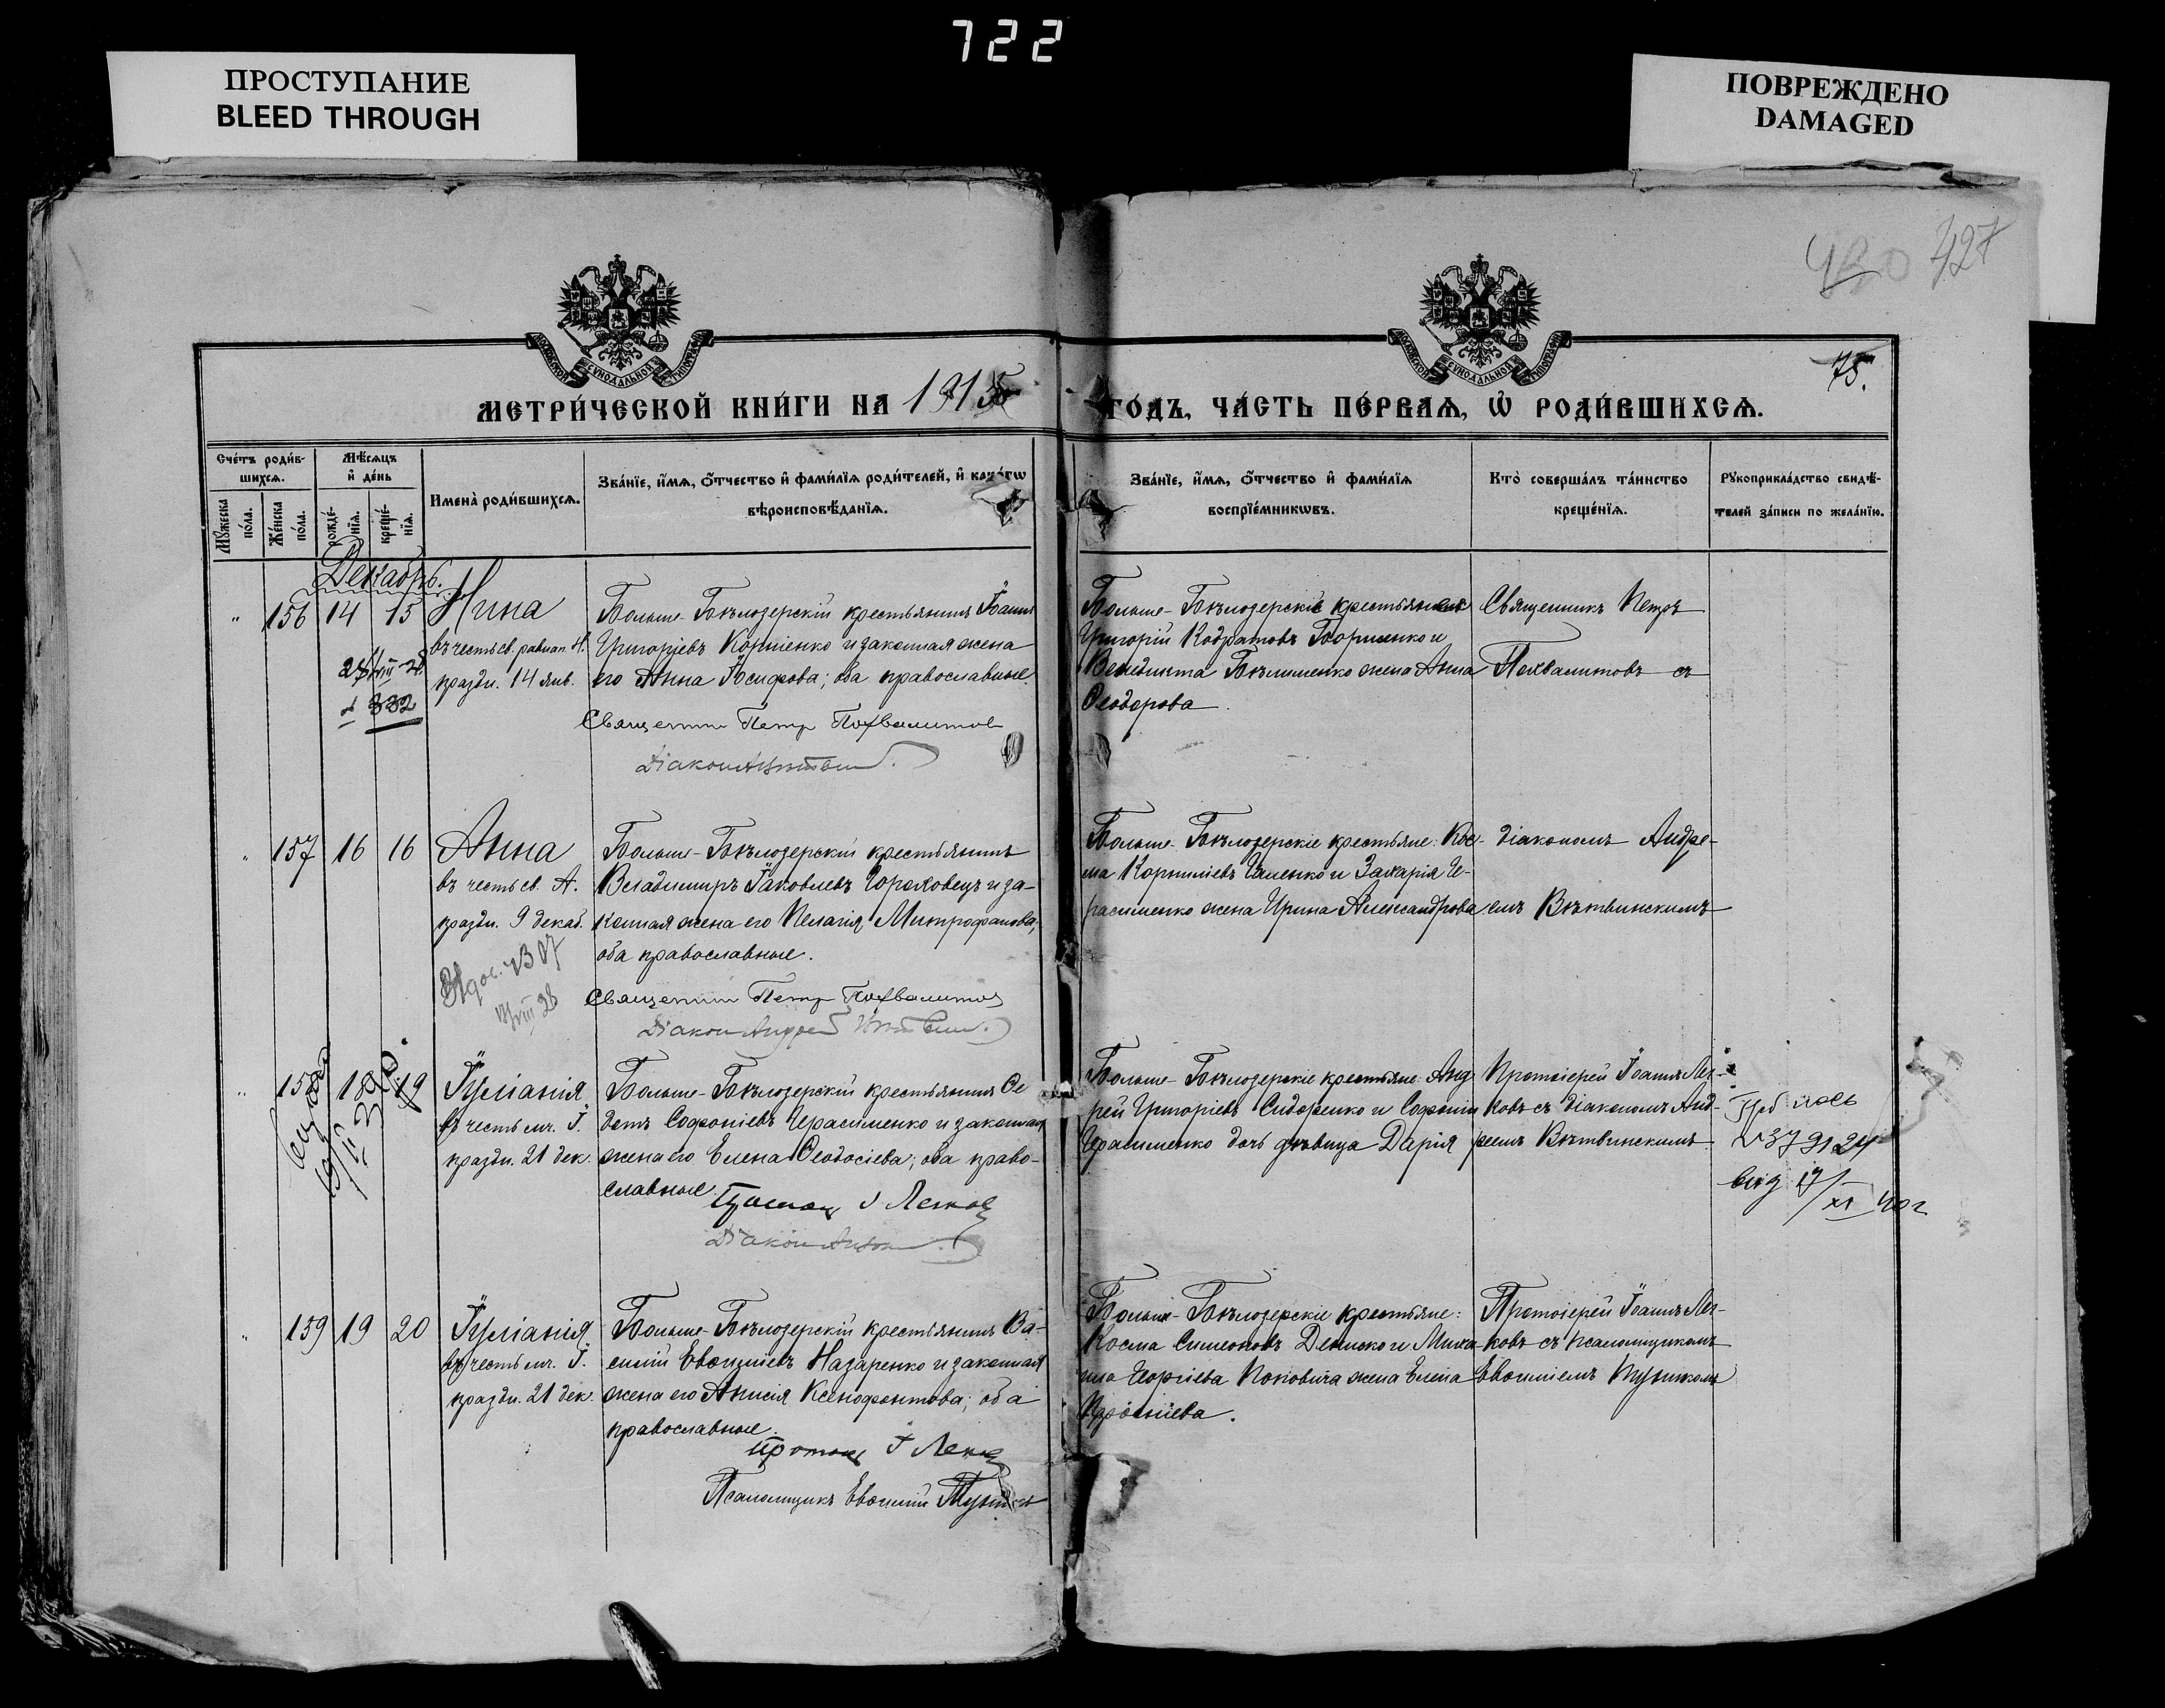 722
ПРОСТУПАНИЕ
BLEED THROUGH
ПОВРЕЖДЕНО
DAMAGED
427
75.
МЕТРИ́ЧЕСКОЙ КНИ́ГИ НА 1915
ГО́ДЪ, ЧА́СТЬ ПЕ́РВАѦ, Ѡ҆ РОДИ́ВШИХСѦ.
Сче́тъ роди́в-
шихсѧ.
Мѣ́сѧцъ
и҆ де́нь
Мꙋ́жеска
по́ла.
Же́нска
по́ла.
рожде́-
нїѧ.
креще́-
нїѧ.
Имена̀ роди́вшихсѧ.
Зва́нїе, и҆́мѧ, ѻ҆́тчество и҆ фами́лїѧ роди́телей, и҆ како́гѡ
вѣроисповѣ́данїѧ.
Зва́нїе, и҆́мѧ, ѻ҆́тчество и҆ фами́лїѧ
воспрїе́мникѡвъ.
Кто̀ соверша́лъ та́инство
креще́нїѧ.
Рꙋкоприкла́дство свидѣ́-
телей за́писи по жела́нїю.
Декабрь.
" 156 14 15 Нина
въ честь св. равноап. Н.
праздн. 14 янв.
Больше-Бѣлозерскій крестьянинъ Іоаннъ
Григорьевъ Корніенко и законная жена
его Анна Іосифова; оба православные.
Священник Петр Похвалитов
Діакон
Больше-Бѣлозерскіе крестьяне
Григорій Кодратовъ и
Венедикта жена Анна
Ѳеодорова.
Священникъ Петръ
Похвалитовъ съ
" 157 16 16 Анна
въ честь св. А.
праздн. 9 декаб.
Больше-Бѣлозерскій крестьянинъ
Владимиръ Іаковлевъ Гороховецъ и за-
конная жена его Пелагія Митрофанова;
оба православные.
Священник Петр Похвалитов
Діакон Андрей
Больше-Бѣлозерскіе крестьяне: Кос-
ма Корниліевъ и Захарія Ге-
расименко жена Ирина Александрова
діакономъ Андре-
емъ Вѣтвинскимъ
" 158 18 19 Іуліанія
въ честь мч. І.
праздн. 21 дек.
Больше-Бѣлозерскій крестьянинъ Ѳе
дотъ Софоніевъ Герасименко и законная
жена его Елена Ѳеодосіева; оба право-
славные.
Діакон
Больше-Бѣлозерскіе крестьяне: Анд
рей Григоріевъ Сидоренко и Софоніи
Герасименко дочь дѣвица Дарія
Протоіерей Іоаннъ
ковъ съ діакономъ Анд-
реемъ Вѣтвинскимъ
" 159 19 20 Іуліанія
въ честь мч. І.
праздн. 21 дек.
Больше-Бѣлозерскій крестьянинъ Ва-
силій Евѳиміевъ Назаренко и законная
жена его Анисія Ксенофонтова; оба
православные.
Псаломщикъ Евѳимій
Больше-Бѣлозерскіе крестьяне:
Косма Симеоновъ и Миха-
ила Георгіева жена Елена
Протоіерей Іоаннъ
ковъ съ псаломщикомъ
Евѳиміемъ